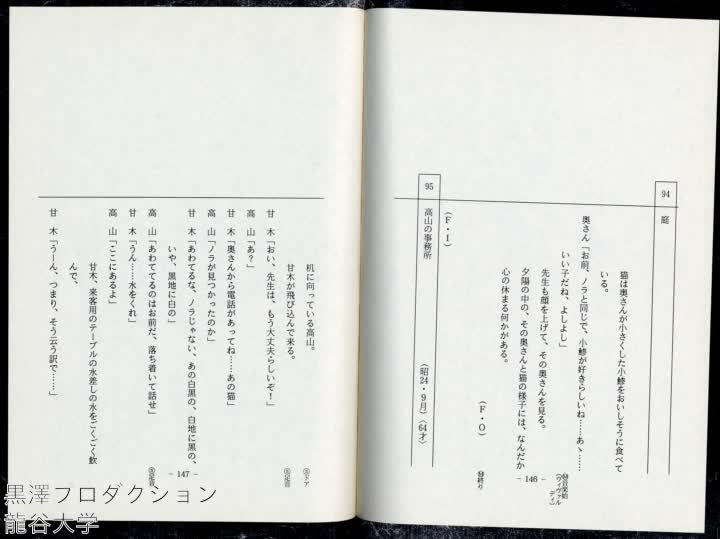 94
庭
猫は奥さんが小さくした小鯵をおいしそうに食べて
いる。
奥さん「お前、ノラと同じで、小鯵が好きらしいね……あゝ……
いい子だね、よしよし」
先生も顔を上げて、その奥さんを見る。
夕陽の中の、その奥さんと猫の様子には、なんだか
心の休まる何かがある。
(F・O)
(F・I)
95
高山の事務所
(昭24・9月)(64才)
音楽開始
(ヴィヴァル
ディ)
終り
－146－
机に向っている高山。
甘木が飛び込んで来る。
甘 木「おい、先生は、もう大丈夫らしいぞ!」
高 山「あ?」
甘 木「奥さんから電話があってね……あの猫」
高 山「ノラが見つかったのか」
甘 木「あわてるな、ノラじゃない、あの白黒の、白地に黒の、
いや、黒地に白の」
高 山「あわててるのはお前だ、落ち着いて話せ」
甘 木「うん……水をくれ」
高 山「ここにあるよ」
甘木、来客用のテーブルの水差しの水をごくごく飲
んで、
甘 木「うーん、つまり、そう云う訳で……」
ドア
足音
足音
－147－
黒澤プロダクション
龍谷大学